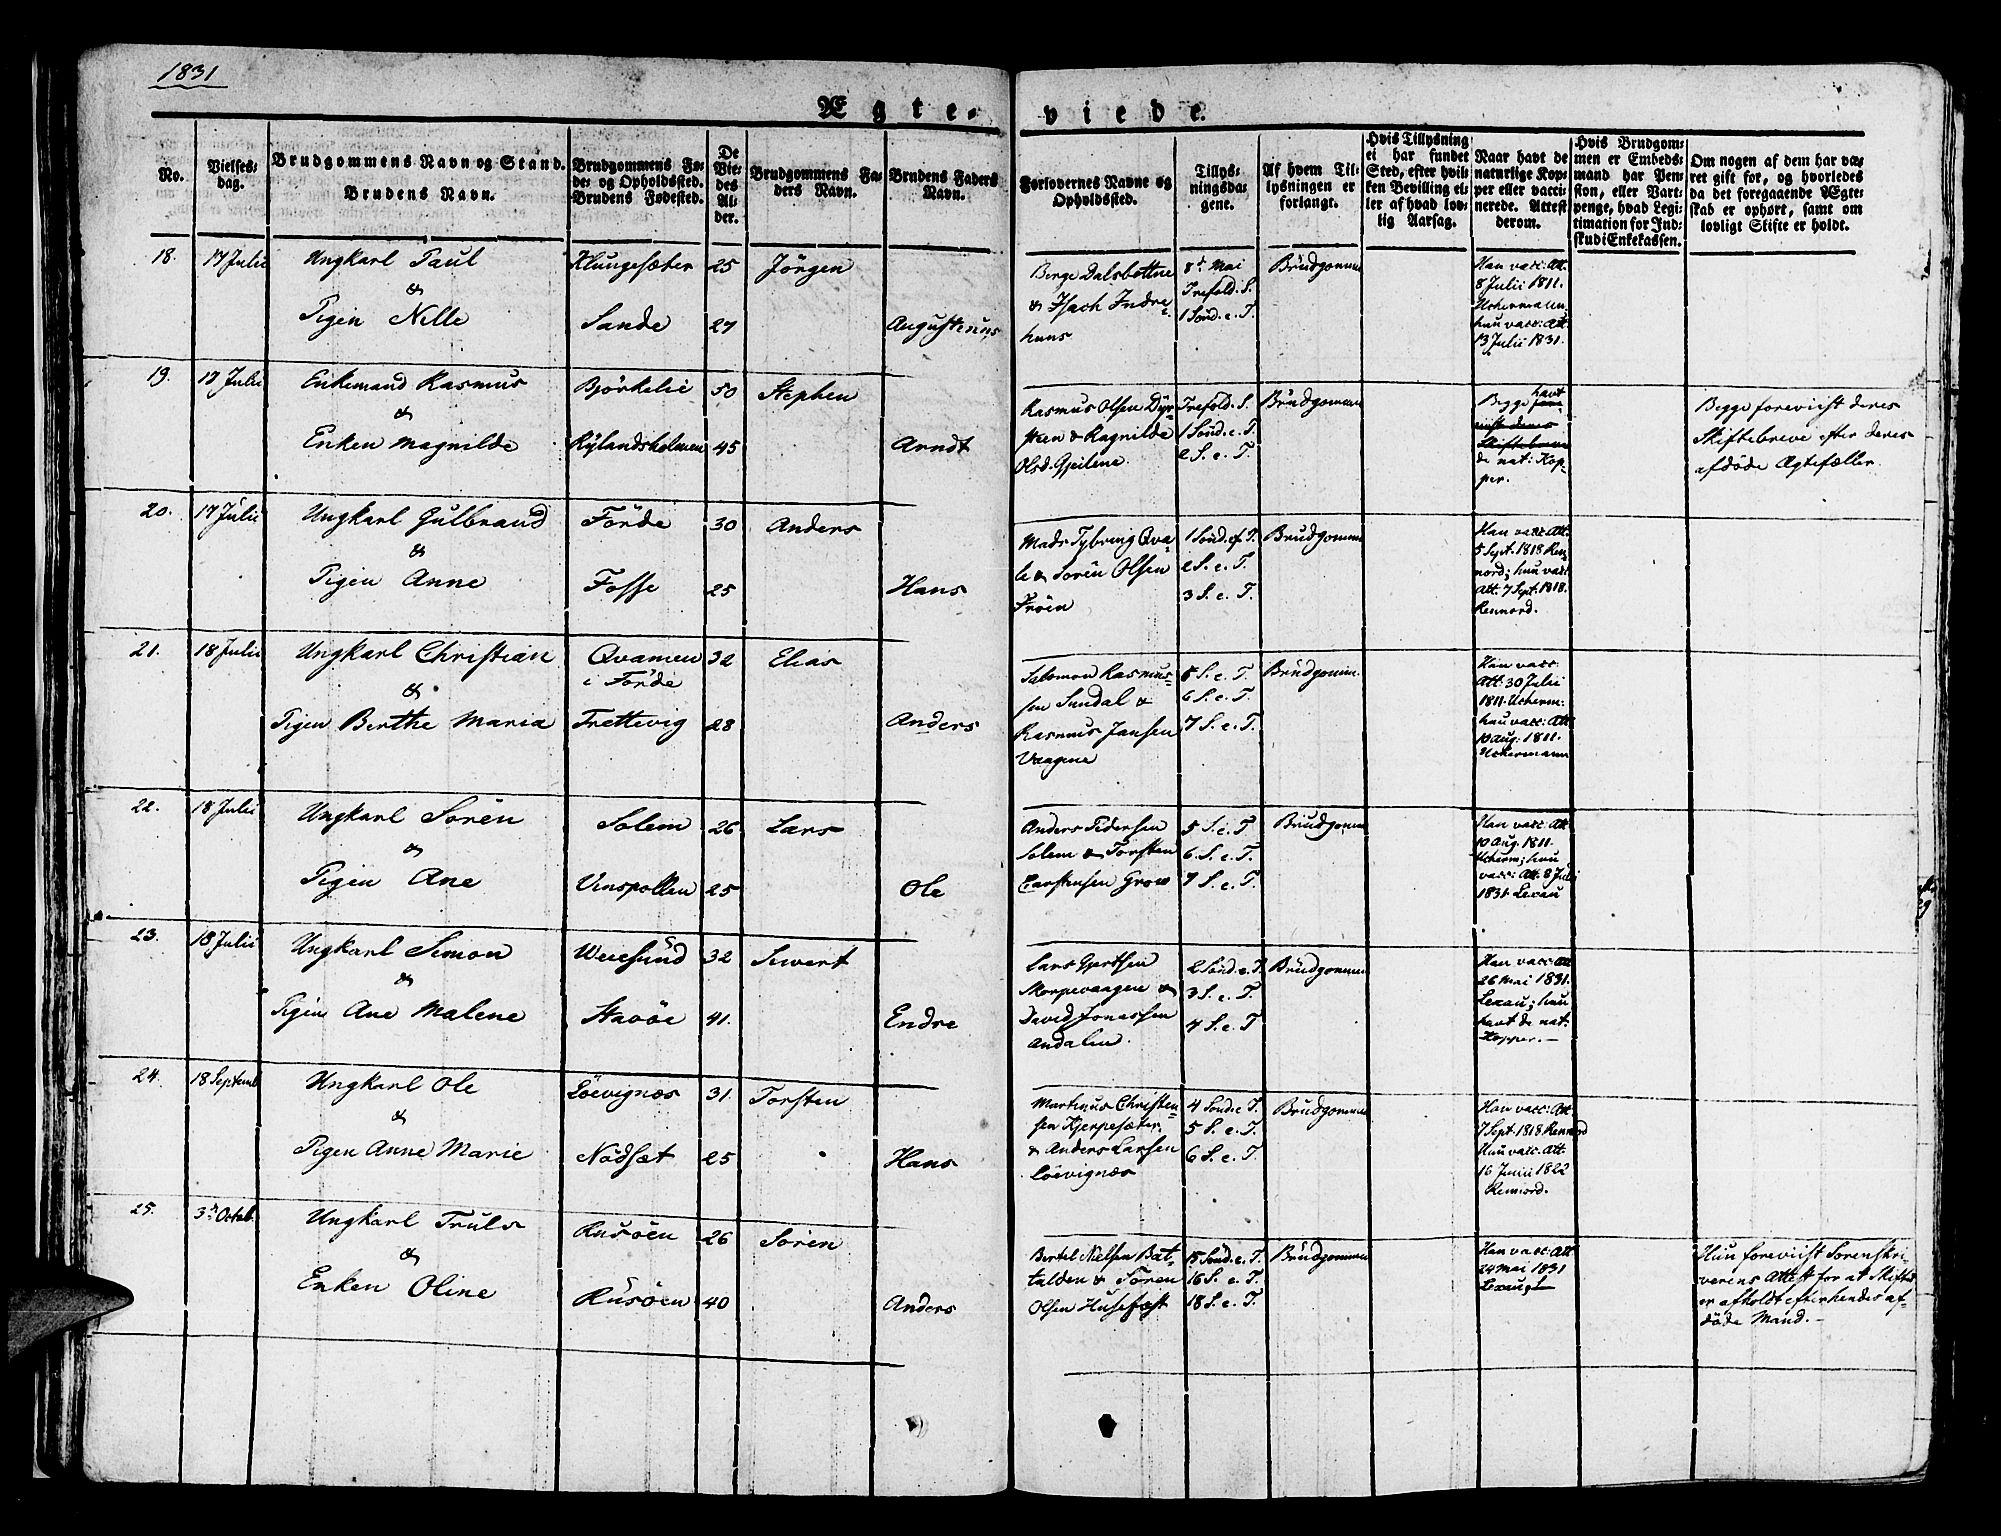 1831
Ægte-
viede.
No.
Vielses-
dag.
Brudgommens Navn og Stand.
Brudens Navn.
Brudgommens Fø-
de- og Opholdssted.
Brudens Fødested.
De
Vie-
des
Al-
der.
Brudgommens Fa-
ders Navn.
Brudens Faders
Navn.
Forlovernes Navne og
Opholdssted.
Tillys-
ningsda-
gene.
Af hvem Til-
lysningen er
forlangt.
Hvis Tillysning
ei har fundet
Sted, efter hvil-
ken Bevilling el-
ler af hvad lov-
lig Aarsag.
Naar havt de
naturlige Kop-
per eller vacci-
nerede. Attest
derom.
Hvis Brudgom-
men er Embeds-
mand har Pen-
sion, eller Vart-
penge, hvad Legi-
timation for Ind-
skud i Enkekassen.
Om nogen af dem har væ-
ret gift for, og hvorledes
da det foregaaende Ægte-
skab er ophørt, samt om
lovligt Skifte er holdt.
18.
17 Julii
Ungkarl Paul
&
Pigen Nille
Klungesæter
Sande
25
27
Jörgen
Augustenus
Berge Dalsbottne
& Isach Indre-
huus
8de Mai
Trefold. S.
1 Sönd. e. T.
Brudgommen
Han vacc: Att.
8 Julii 1811.
Uchermann
hun vacc: Att.
13 Julii 1831.
19.
17 Julii
Enkemand Rasmus
&
Enken Magnilde
Björkelie
Rylandsholmen
50
45
Stephen
Arndt
Rasmus Olsen Dyr-
steen & Ragnilde
Olsd. Gjeilene.
Trefold. S.
1 Sönd. e. T.
2 S. e. T.
Brudgommen
Begge havt
de nat: Kop-
per.
Begge foreviist deres
Skiftebreve efter deres
afdöde Ægtefæller.
20.
17 Julii
Ungkarl Gulbrand
&
Pigen Anne
Förde
Fosse
30
25
Anders
Hans
Mads Tybring Qva-
le & Sören Olsen
Fröen
1 Sönd. ef. T.
2 S. e. T.
3 S. e. T.
Brudgommen
Han vacc: Att.
5 Sept. 1818 Ren-
nord; hun vacc.
Att. 7 Sept. 1818.
Rennord.
21.
18 Julii
Ungkarl Christian
&
Pigen Berthe Maria
Qvamen
i Förde
Trettevig
32
28
Elias
Anders
Salomon Rasmus-
sen Sundal &
Rasmus Jansen
Vaagene
5 S. e. T.
6 S. e. T.
7 S. e. T.
Brudgomm.
Han vacc:
Att: 30 Julii
1811. Ucherm:
hun vacc: Att.
10 Aug: 1811.
Uchermann
22.
18 Julii
Ungkarl Sören
&
Pigen Ane
Solem
Vinspollen
26
25
Lars
Ole
Anders Pedersen
Solem & Torsten
Carstensen Grov
5 S. e. T
6. S. e. T.
7 S. e. T.
Brudgomm
Han vacc: Att.
10 Aug. 1811.
Ucherm; hun
vacc: Att. 8 Juli
1831 Lexau
23.
18 Julii
Ungkarl Simon
&
Pigen Ane Malene
Weiesund
Stavöe
32
41.
Siwert
Endre
Lars Gjertsen
Skorpevaagen &
David Jonassen
Andalen.
2 Sönd. e. T.
3 S. e. T.
4 S. e. T
Brudgommen
Han vacc: Att
26 Mai 1831.
Lexau; hun
havt de nat:
Kopper. —
24.
18 Septemb
Ungkarl Ole
&
Pigen Anne Marie
Löevignæs
Nödsæt
31.
25
Torsten
Hans
Martinus Christen-
sen Kjerpesæter
& Anders Larsen
Löevignæs
4 Sönd e T.
5 S. e. T.
6 S. e. T.
Brudgommen
Han vacc: Att
7 Sept. 1818 Rennord
Hun vacc: Att.
16 Junii 1822
Rennord.
25.
3de Octob.
Ungkarl Truls
&
Enken Oline
Rusöen
Rusöen
26
40
Sören
Anders
Bertel Nielsen Bat-
talden & Sören
Olsen Husefæst
15 Sönd. e. T.
16 S. e. T.
18 S. e. T.
Brudgommen
Han vacc: Att
24 Mai 1831
Lexau
Hun foreviist Sorenskri-
verens Attest for at Skifte
er afholdt efter hendes af-
döde Mand. —